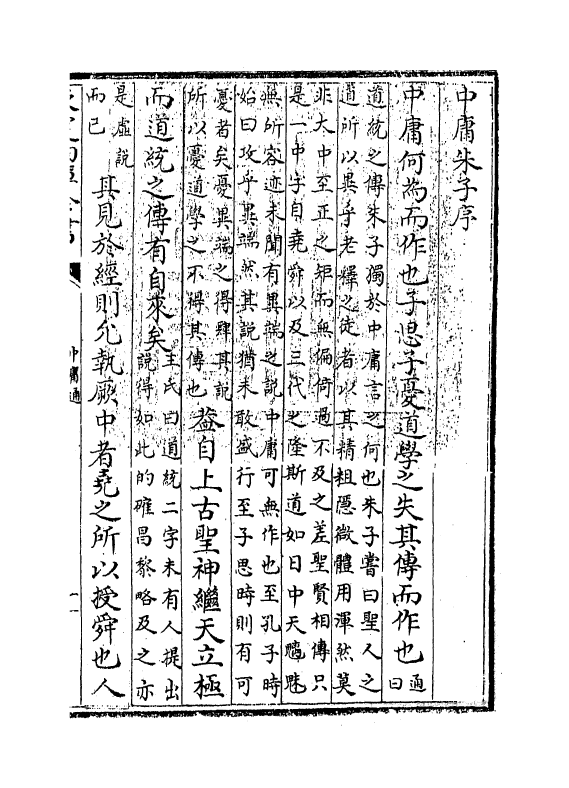 中庸朱子序
中庸何為而作也子思子憂道學之失其傳而作也通曰
道統之傳朱子獨於中庸言之何也朱子嘗曰聖人之
道所以異乎老釋之徒者以其精粗隱微體用渾然莫
非大中至正之矩而無偏倚過不及之差聖賢相傳只
是一中字自堯舜以及三代之隆斯道如日中天魑魅
無所容迹未聞有異端之說中庸可無作也至孔子時
始曰攻乎異端然其說猶未敢盛行至子思時則有可
憂者矣憂異端之得肆其說
所以憂道學之不得其傳也
蓋自上古聖神繼天立極
而道統之傳有自來矣
王氏曰道統二字未有人提出
說得如此的確昌黎略及之亦
是虛說
而已
其見於經則允執厥中者堯之所以授舜也人
中庸通